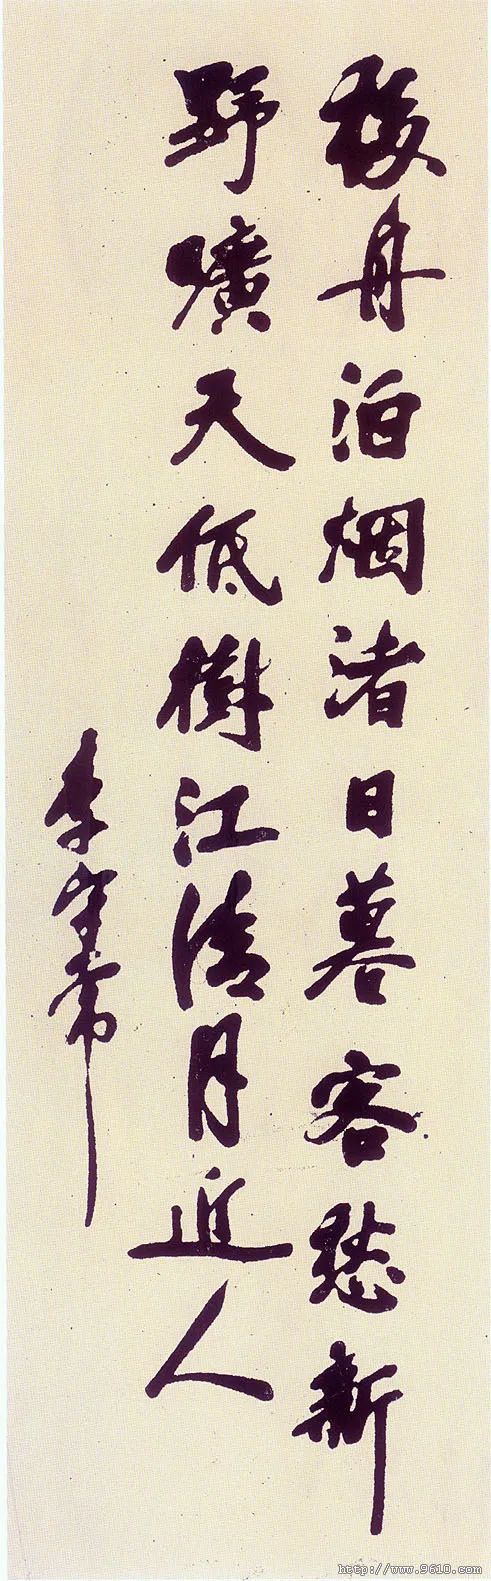 移舟泊烟渚日暮客愁新
野曠天低樹江清月近人
李守常
http://www.9610.com